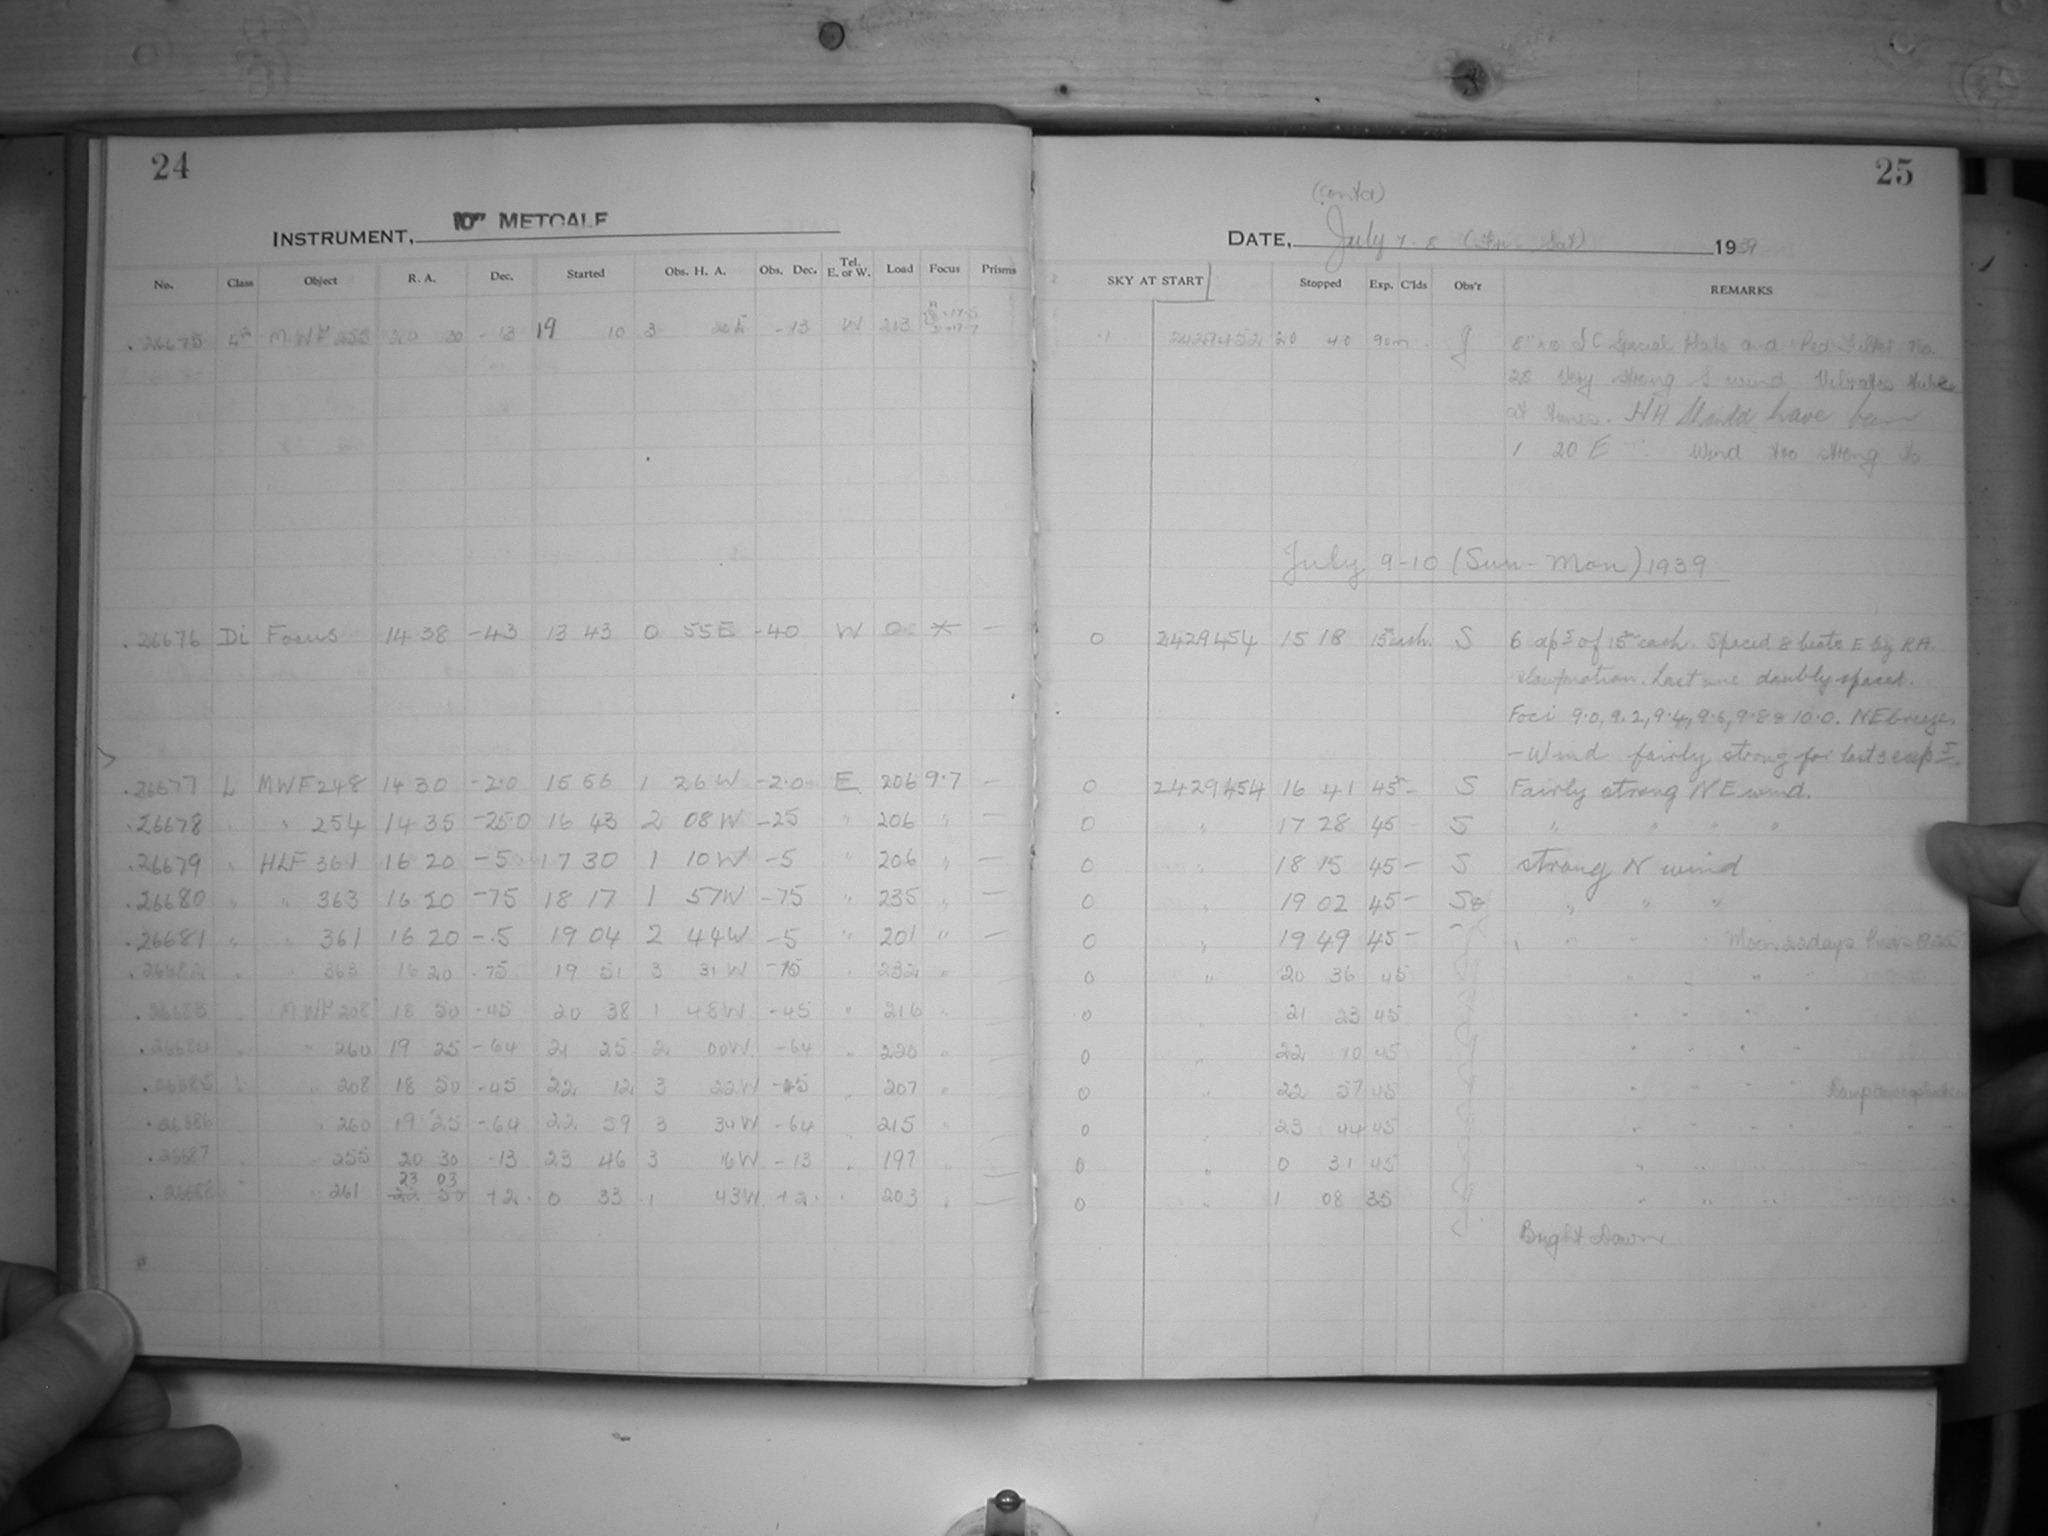 24
INSTRUMENT, 10" METCALF
No. Class Object R. A. Dec. Started Obs. H. A. Obs. Dec. Tel. E. or W. Load Focus Prisms
.26675 MWF 255 20 30 -13 19 10 3 20 E -13 W 213
.26676 Di Focus 14 38 -43 13 43 0 55E -40 W 0 * —
.26677 L MWF 248 14 30 -20 15 56 1 26 W -20 E 206 9.7 —
.26678 " " 254 14 35 -25 0 16 43 2 08 W -25 " 206 " —
.26679 " HLF 361 16 20 -5 17 30 1 10 W -5 " 206 " —
.26680 " " 363 16 20 -75 18 17 1 57W -75 " 235 " —
.26681 " " 361 16 20 -5 19 04 2 44W -5 " 201 " —
.26682 " " 363 16 20 -75 19 51 3 31 W -75 " 232 "
.26683 " MWF 208 18 50 -45 20 38 1 48W -45 " 216 "
.26684 " " 260 19 25 -64 21 25 2 00W -64 " 220 "
.26685 " " 208 18 50 -45 22 12 3 22W -45 " 207 "
.26686 " 260 19 25 -64 22 59 3 34W -64 " 215 "
.26687 " 255 20 30 -13 23 46 3 16W -13 " 197 "
23 03
.26688 " " 261 22 50 +2 0 33 1 43W +2 " 203 "
25
(Contd)
DATE, July 7-8 (Fri-Sat) 1939
SKY AT START Stopped Exp. C'lds Obs'r REMARKS
1 2429452 20 40 90m J 8" x 10 I C Special Plate and Red Filter No.
28 Very strong S wind Vibrates tube
at times. HA should have been
1 20 E Wind too strong to
July 9-10 (Sun-Mon) 1939
0 2429454 15 18 15m each. S 6 aps of 15m each. Spaced 8 beats E by RA
slow motion. Last one doubly spaced.
Foci 9.0, 9.2, 9.4, 9.6, 9.8 & 10.0. NE breeze.
—Wind fairly strong for last 3 exps.
0 2429454 16 41 45 — S Fairly strong NE wind.
0 " 17 28 45 S " " " "
0 " 18 15 45 — S strong N wind
0 " 19 02 45 — S " " "
0 " 19 49 45 — " " " Moon 22 days
0 " 20 36 45 " " "
0 " 21 23 45 " " " "
0 " 22 10 45 " " " "
0 " 22 57 45 " " " "
0 " 23 44 45 " " " "
0 " 0 31 45 " " "
0 " 1 08 35 " " "
Bright Dawn